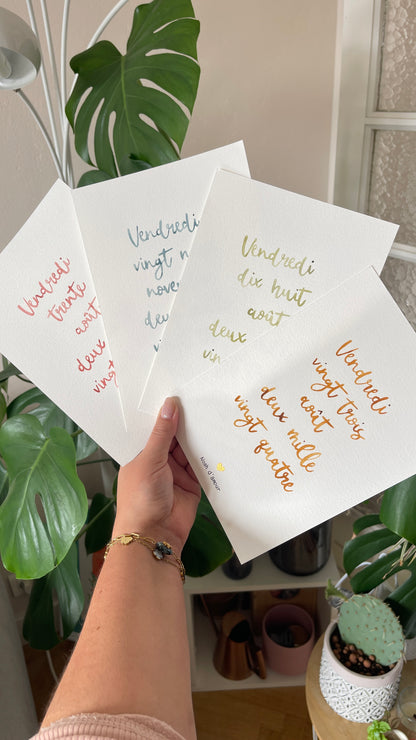 Vendredi
trente
août
deux
vingt
Vendredi
vingt
deux
Vendredi
dix huit
août
deux
Vendredi
vingt trois
août
deux mille
vingt quatre